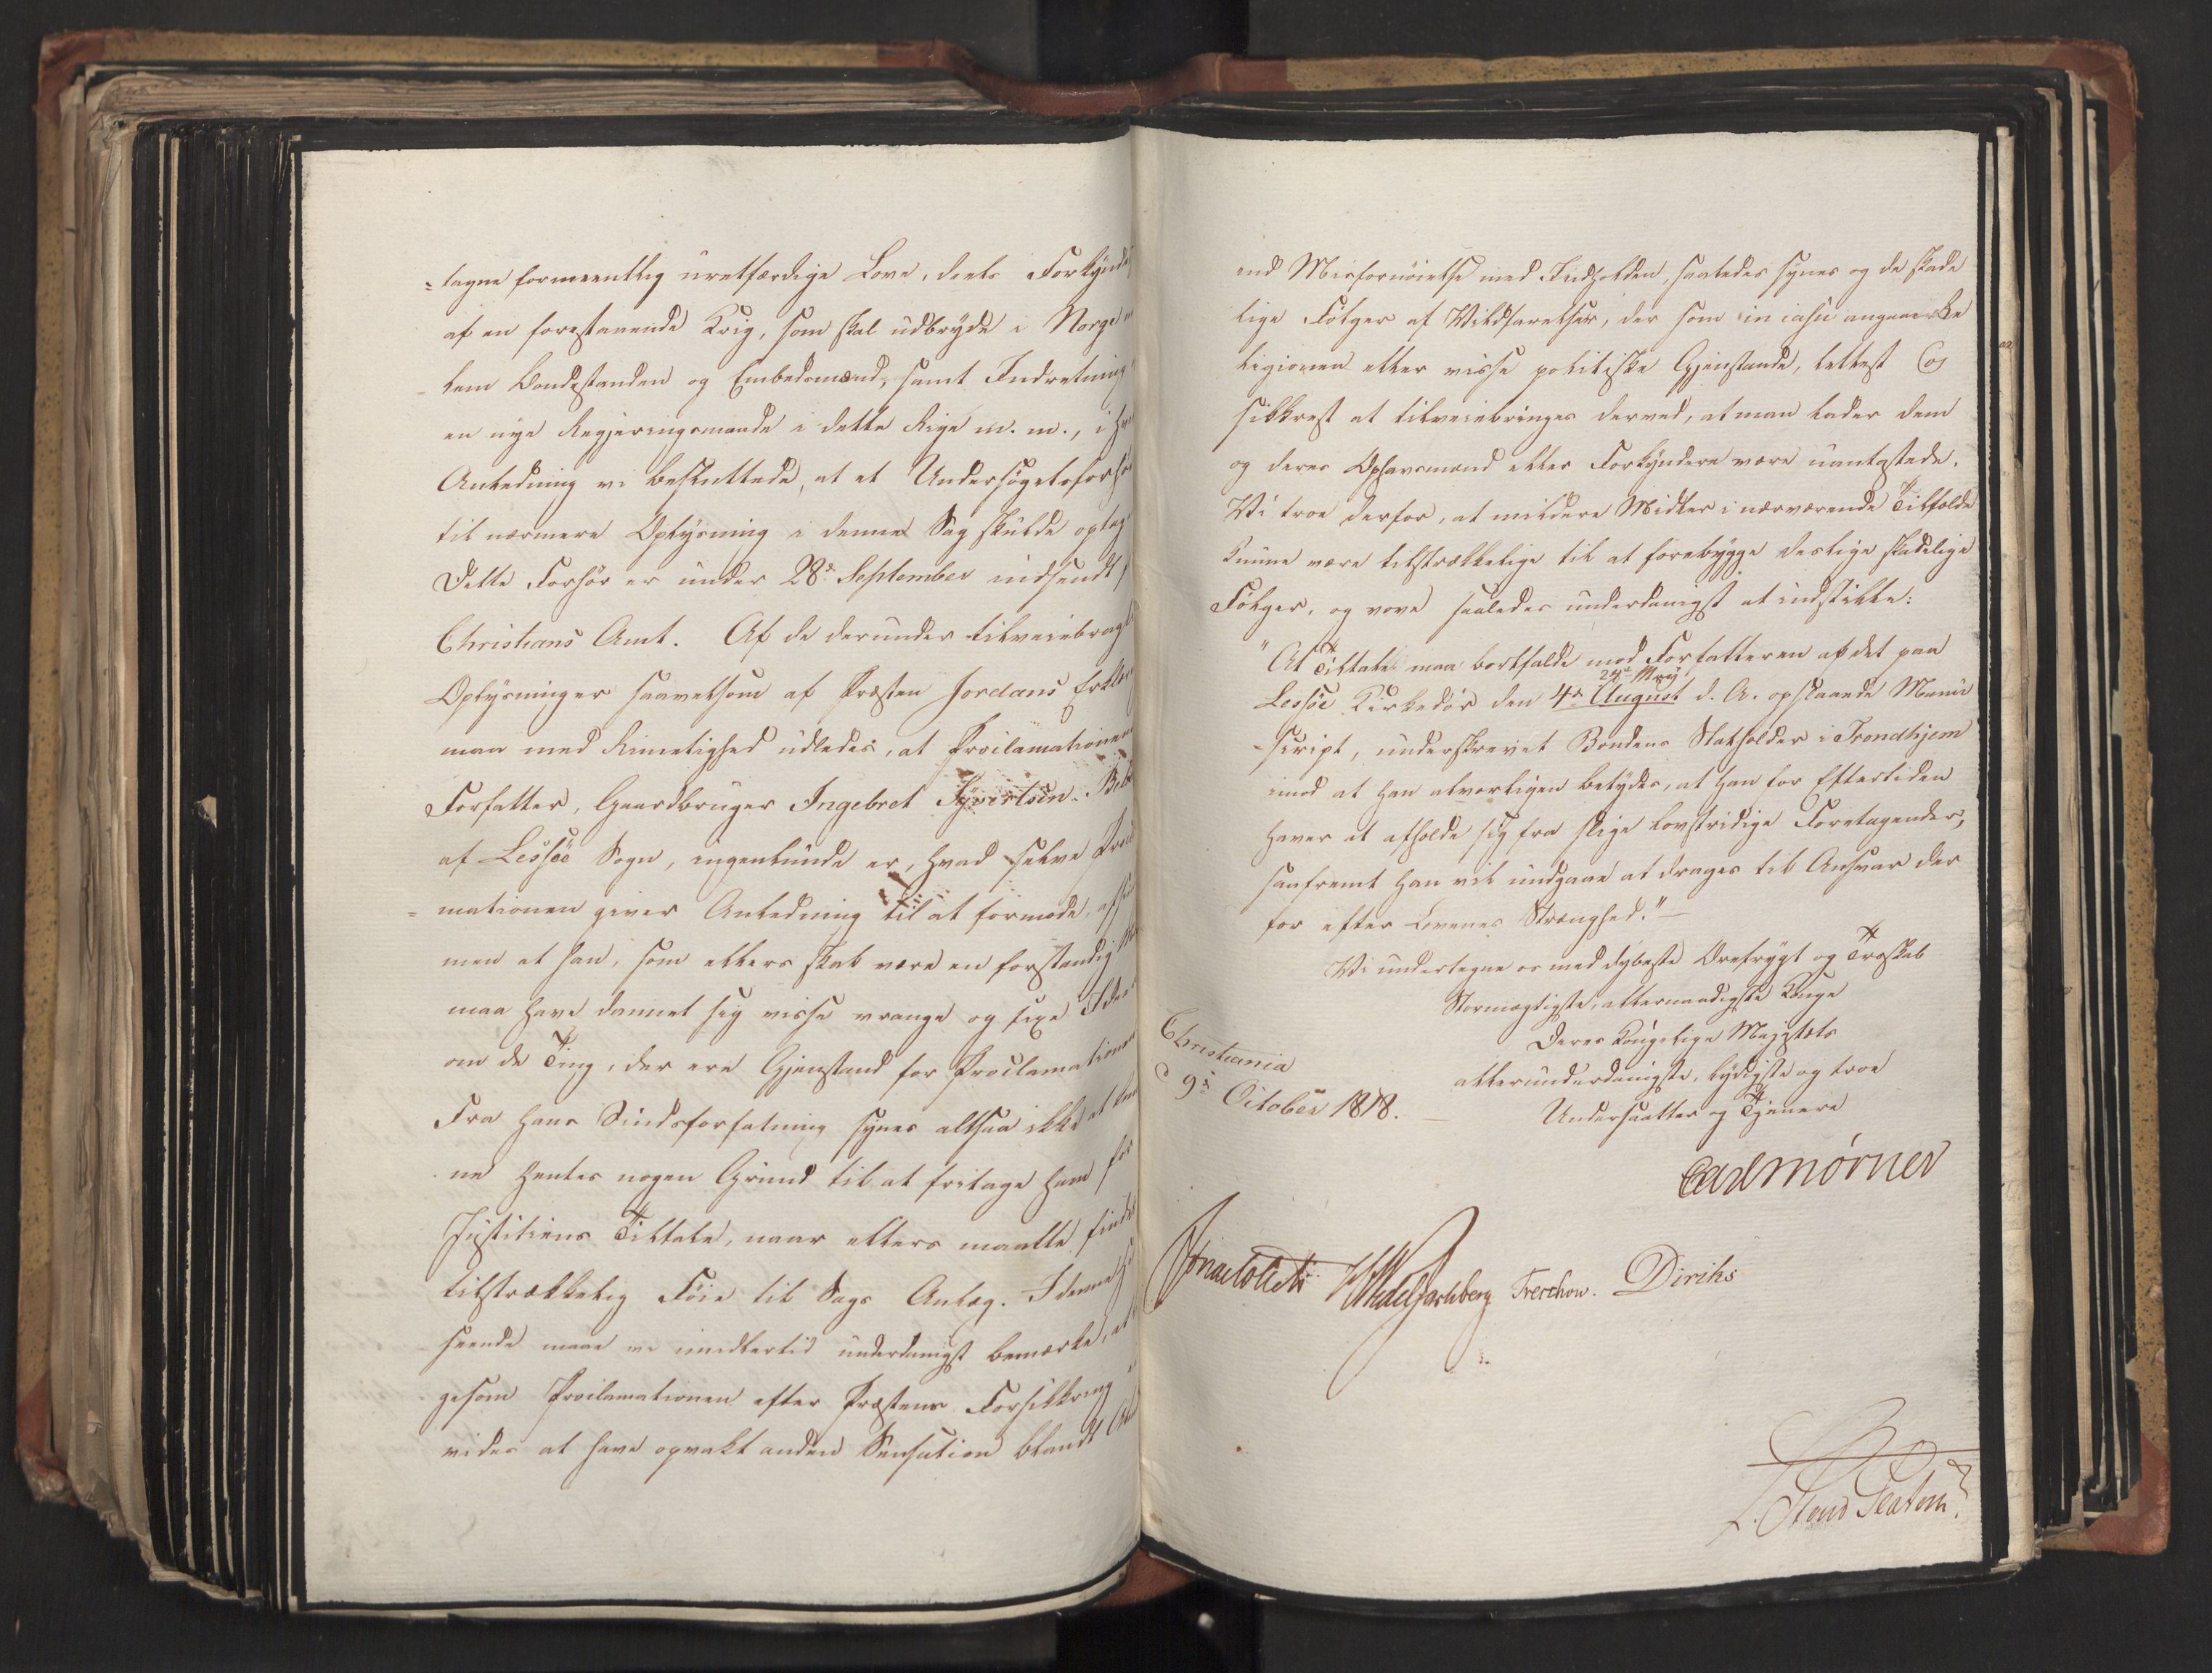 =tagne formeentlig uretfærdige Love, deels Forkynde
af en forestaaende Krig, som skal udbryde i Norge
lem Bondestanden og Embedsmænd, samt Indretning
en nye Regjeringsmaade i dette Rige m. m., i
Anledning vi besluttede, at et Undersøgelsesforhør
til nærmere Oplysning i denne Sag skulde optag
Dette Forhør er under 28de September indsendt
Christians Amt. Af de derunder tilveiebragte
Oplysninger saavelsom af Præsten Jordans Erklær
maa med Rimelighed udledes, at Proclamationens
Forfatter, Gaardbruger Ingebret Syvertsen
af Lessøe Sogn, ingenlunde er, hvad selve Procla
=mationen giver Anledning til at formode,
men at han, som ellers skal være en forstandig
maa have dannet sig visse vrange og fixe Ideer
om de Ting, der ere Gjenstand for Proclamationen
Fra hans Sindsforfatning synes altsaa ikke at kun
ne hentes nogen Grund til at fritage ham for
Justitiens Tiltale, naar ellers maatte findes
tilstrækkelig Føie til Sags Anlæg. I denne
seende maae vi imidlertid underdanigst bemærke, at
gesom Proclamationen efter Præstens Forsikkring
vides at have opvakt anden Sensation blandt
end Misfornøielse med Indholdet, saaledes synes og de skade
lige Følger af Vildfarelser, der som in casu angaaer Re
ligionen eller visse politiske Gjenstande, lettest og
sikkrest at tilveiebringes derved, at man lader dem
og deres Ophavsmænd eller Forkyndere være uantastede.
Vi troe derfor, at mildere Midler i nærværende Tilfælde
kunne være tilstrækkelige til at forebygge deslige skadelige
Følger, og vove saaledes underdanigst at indstille:
"At Tiltale maa bortfalde mod Forfatteren af det paa
24de May
Lessøe Kirkedør den 4de August d. A. opslaaede Manu
=script, underskrevet Bondens Statholder i Trondhjem
imod at han alvorligen betydes, at han for Eftertiden
haver at afholde sig fra slige lovstridige Foretagender,
saafremt han vil undgaae at drages til Ansvar der
for efter Lovenes Strænghed."—
Vi undertegne os med dybeste Ærefrygt og Troskab
Stormægtigste, allernaadigste Konge
Deres Kongelige Majestæts
allerunderdanigste, lydigste og troe
Undersaatter og Tjenere
Christiania
d 9de October 1818.
Carl Mörner
Jonas Collett HWedel Jarlsberg Treschow. Diriks